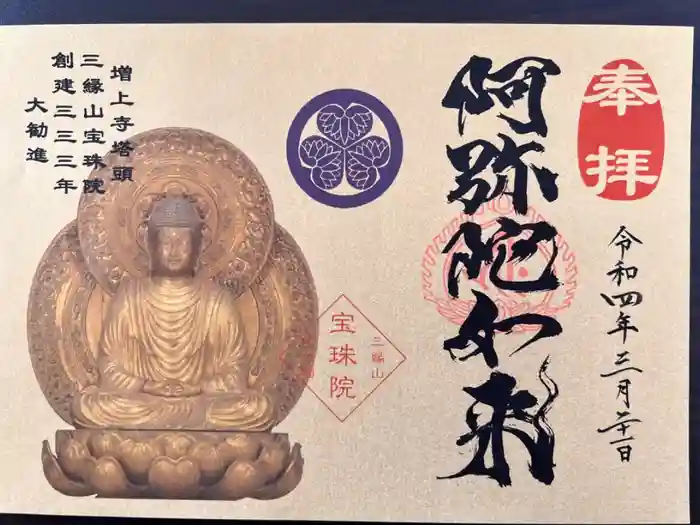 奉拝
令和四年三月二十一日
阿弥陀如来
増上寺塔頭
三縁山宝珠院
創建三三三年
大勧進
三縁山
宝珠院